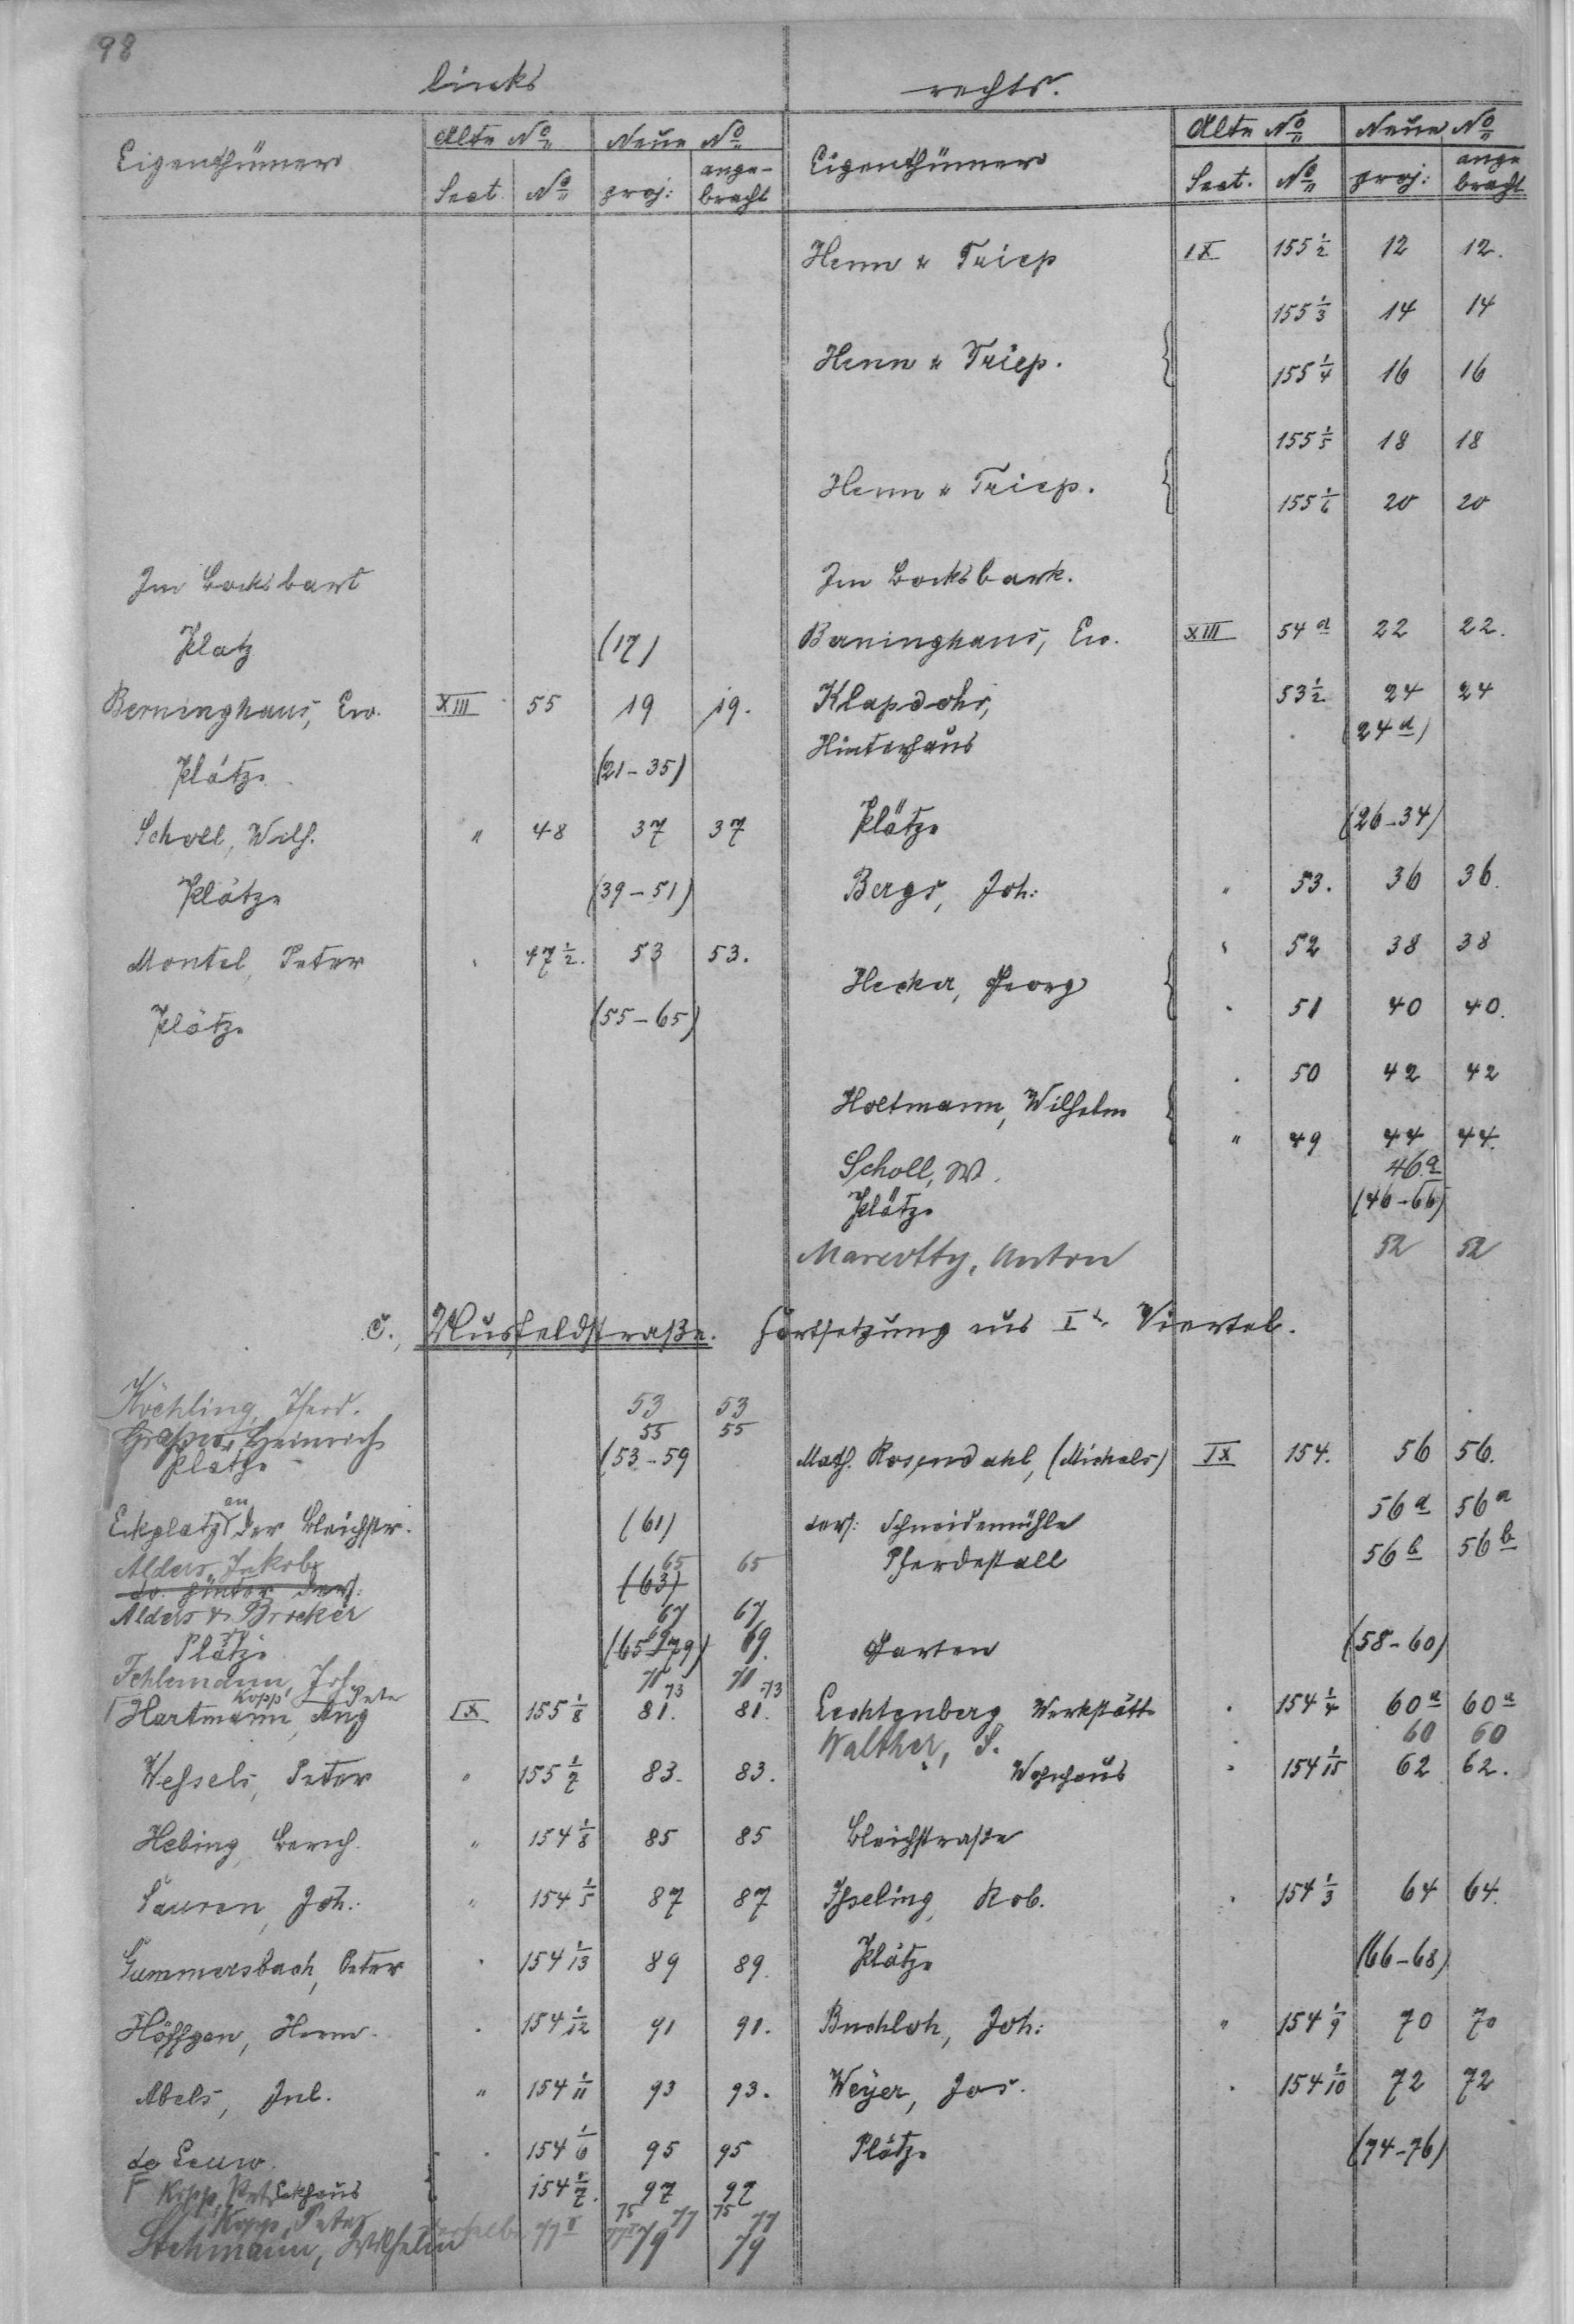 98
links
rechts.
Eigenthümer
Alte No
Neue No
Sect. No proj: ange-
bracht
Eigenthümer
Alte No
Neue No
Sect. No proj: ange
bracht
Henn & Triep IX 155 1/2 12 12.
155 1/3 14 14
Henn & Triep. 155 1/4 16 16
155 1/5 18 18
Henn & Triep. 155 1/6 20 20
Im Bocksbart Im Bocksbark.
Platz (17) Berninghaus, Ew. XIII 54 a 22 22.
Berninghaus, Ew. XIII 55 19 19. Klapdohr, 53 1/2 24 24
Hinterhaus (24 a)
Plätze (21-35)
Plätze (26-34)
Scholl, Wilh. " 48 37 37
Plätze (39-51) Bergs, Joh: " 53. 36 36.
Montel, Peter " 47 1/2. 53 53. " 52 38 38
Hecker, Georg " 51 40 40.
Plätze (55-65)
" 50 42 42
Holtmann, Wilhelm " 49 44 44.
Scholl, W. 46 a
Plätze (46-66)
Marcotty, Anton 52 52
c., Musfeldstraße. Fortsetzung aus I tr Viertel.
Köchling, Ferd. 53 53
Heinrich 55 55
Plätze (53-59 Math. Rosendahl, (Michels) IX 154. 56 56.
Eckplatz an der Bleichstr. (61) ders: Schneidemühle 56 a 56 a
Alders, Jakob 65 65 Pferdestall 56 b 56 b
do. hinter ders: (63)
Alders & Brocker 67 67
Plätze (65-79) 69 69. Garten (58-60)
Fehlemann, Joh 71 71
Kopp, Pete 73 73
Hartmann, Aug IX 155 1/8 81. 81. Lechtenberg Werkstätte " 154 1/4 60 a 60 a
Walther, P. 60 60
Weßels, Peter " 155 1/7 83. 83. Wohnhaus " 154 1/15 62 62.
Hebing, Bernh. " 154 1/8 85 85 Bleichstraße
Sauren, Joh: " 154 1/5 87 87 Ißeling, Rob. " 154 1/3 64 64.
Gummersbach, Peter " 154 1/13 89 89. Plätze (66-68)
Höffgen, Herm. " 154 1/12 91 91. Buchloh, Joh: " 154 1/9 70 70
Abels, Jul. " 154 1/11 93 93. Weyer, Jos. " 154 1/10 72 72
de Leuw. " 154 1/6 95 95 Plätze (74-76)
Kopp, Pet. Eckhaus 154 1/7. 97 97
Kopp, Peter 75 77 75 77
Stehmann, Wilhelm 79 79